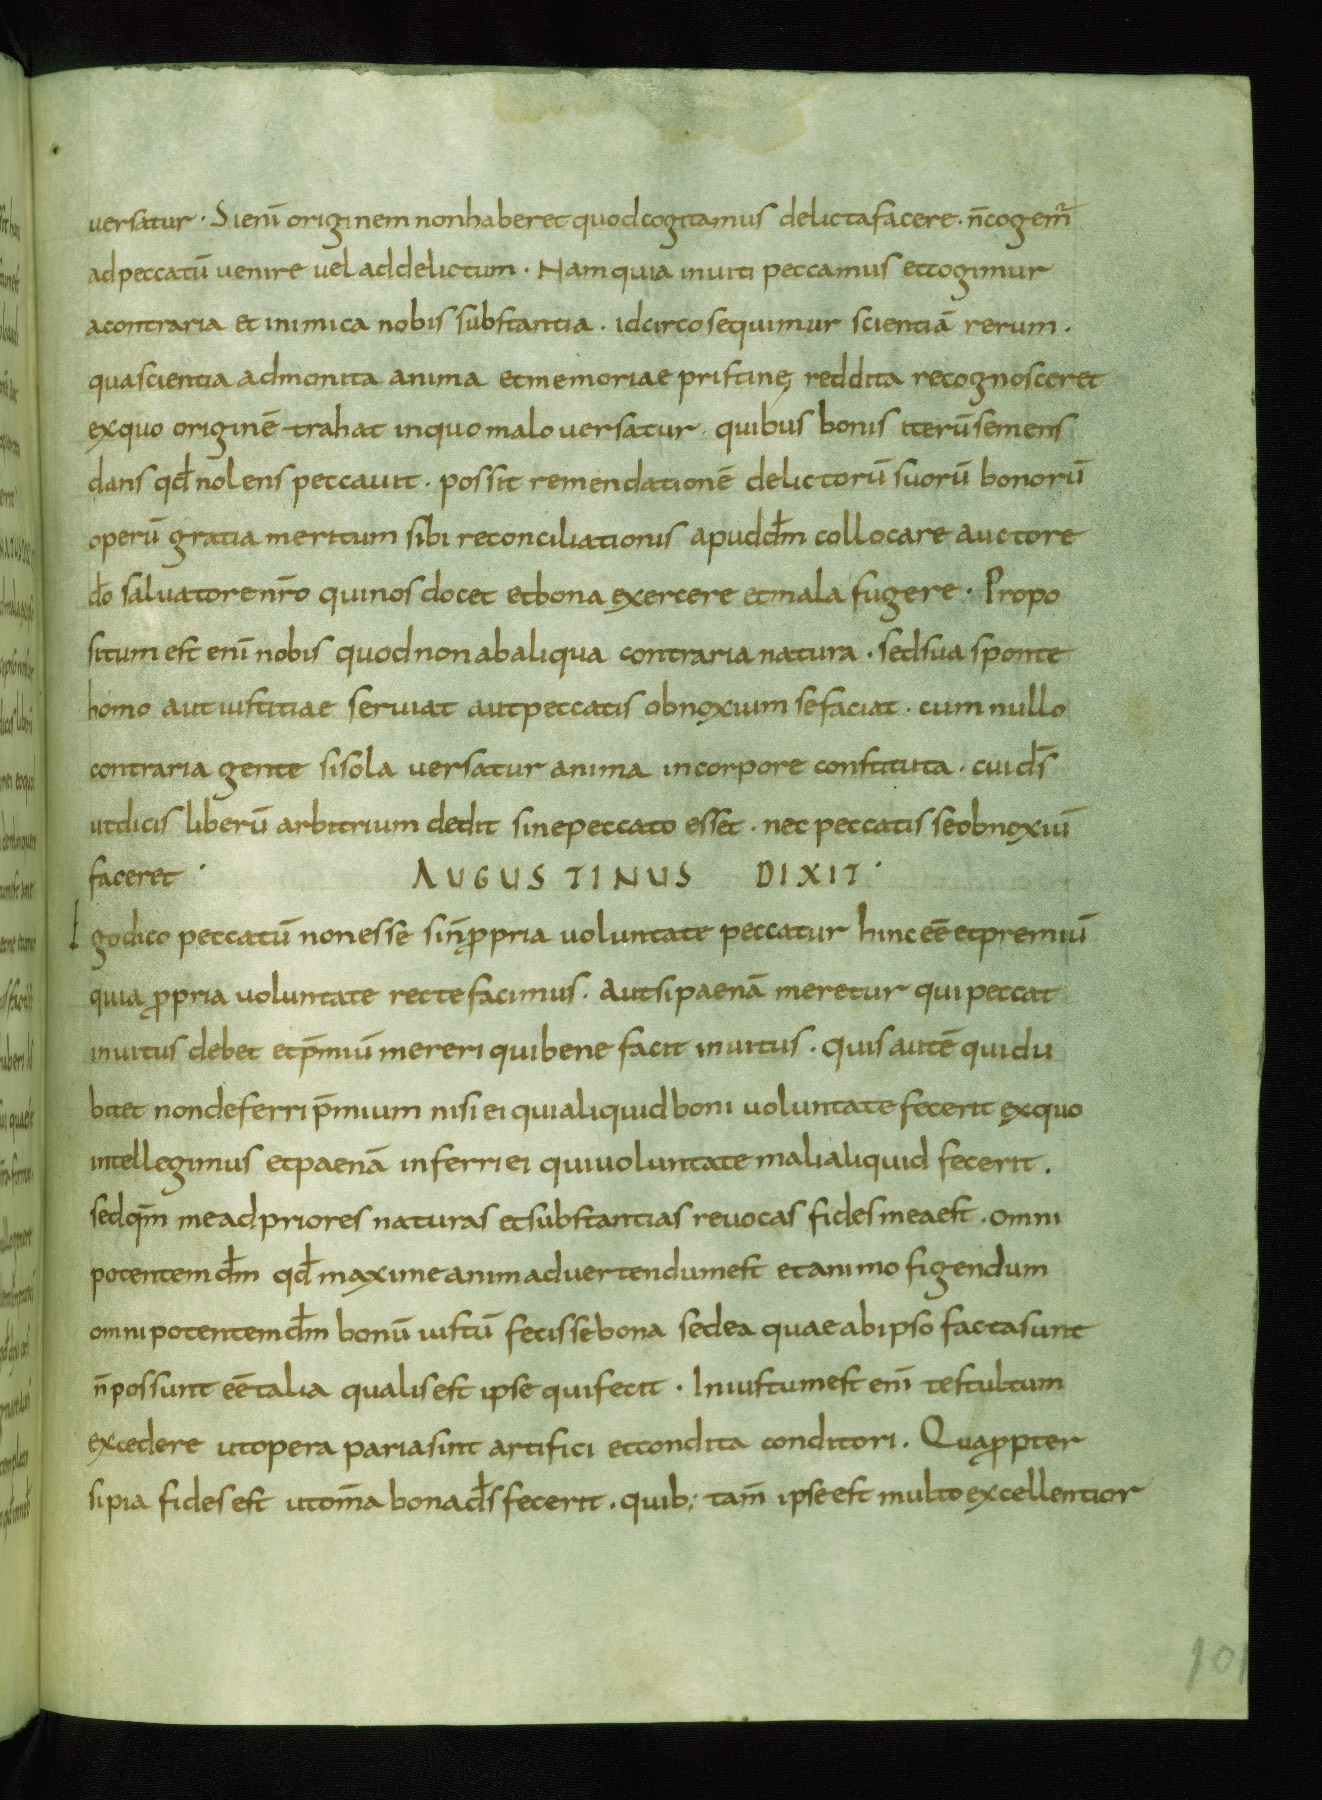 versatur · Si enī originem non haberet quod cogitamus delicta facere · n̄ cogem̄
ad peccatū venire vel ad delictum · Nam quia inviti peccamus et cogimur
a contraria et inimica nobis substantia · idcirco sequimur scientiā rerum ·
qua scientia admonita anima et memoriae pristinę reddita recognosceret
ex quo originē trahat in quo malo versatur · quibus bonis iterū semens
dans qđ nolens peccavit · possit remendationē delictorū suorū bonorū
operū gratia meritum sibi reconciliationis apud dm̄ collocare auctore
do̅ salvatore nr̄o qui nos docet et bona exercere et mala fugere · Propo
situm est enī nobis quod non ab aliqua contraria natura · sed sua sponte
homo aut iustitiae serviat aut peccatis obnoxium se faciat · cum nullo
contraria gente si sola versatur anima in corpore constituta · cui ds̄
ut dicis liberū arbitrium dedit sine peccato esset · nec peccatis se obnoxiū
faceret · AUGUSTINUS DIXIT ·
Ego dico peccatū non esse si n̄ ꝓpria voluntate peccatur hinc eē et premiū
quia ꝓpria voluntate recte facimus · Aut si paenā meretur qui peccat
invitus debet et p̄miū mereri qui bene facit invitus · Quis autē qui du
bitet non deferri p̄mium nisi ei qui aliquid boni voluntate fecerit ex quo
intellegimus et paenā inferri ei qui voluntate mali aliquid fecerit ·
sed qm̄ me ad priores naturas et substantias revocas fides mea est · omni
potentem dm̄ qđ maxime animadvertendum est et animo figendum
omnipotentem dm̄ bonū iustū fecisse bona sed ea quae ab ipso facta sunt
n̄ possunt eē talia qualis est ipse qui fecit · Iniustum est enī te stultum
excedere ut opera paria sint artifici et condita conditori · Quaꝓpter
si pia fides est ut om̄a bona ds̄ fecerit · quib; tam̄ ipse est multo excellentior
101